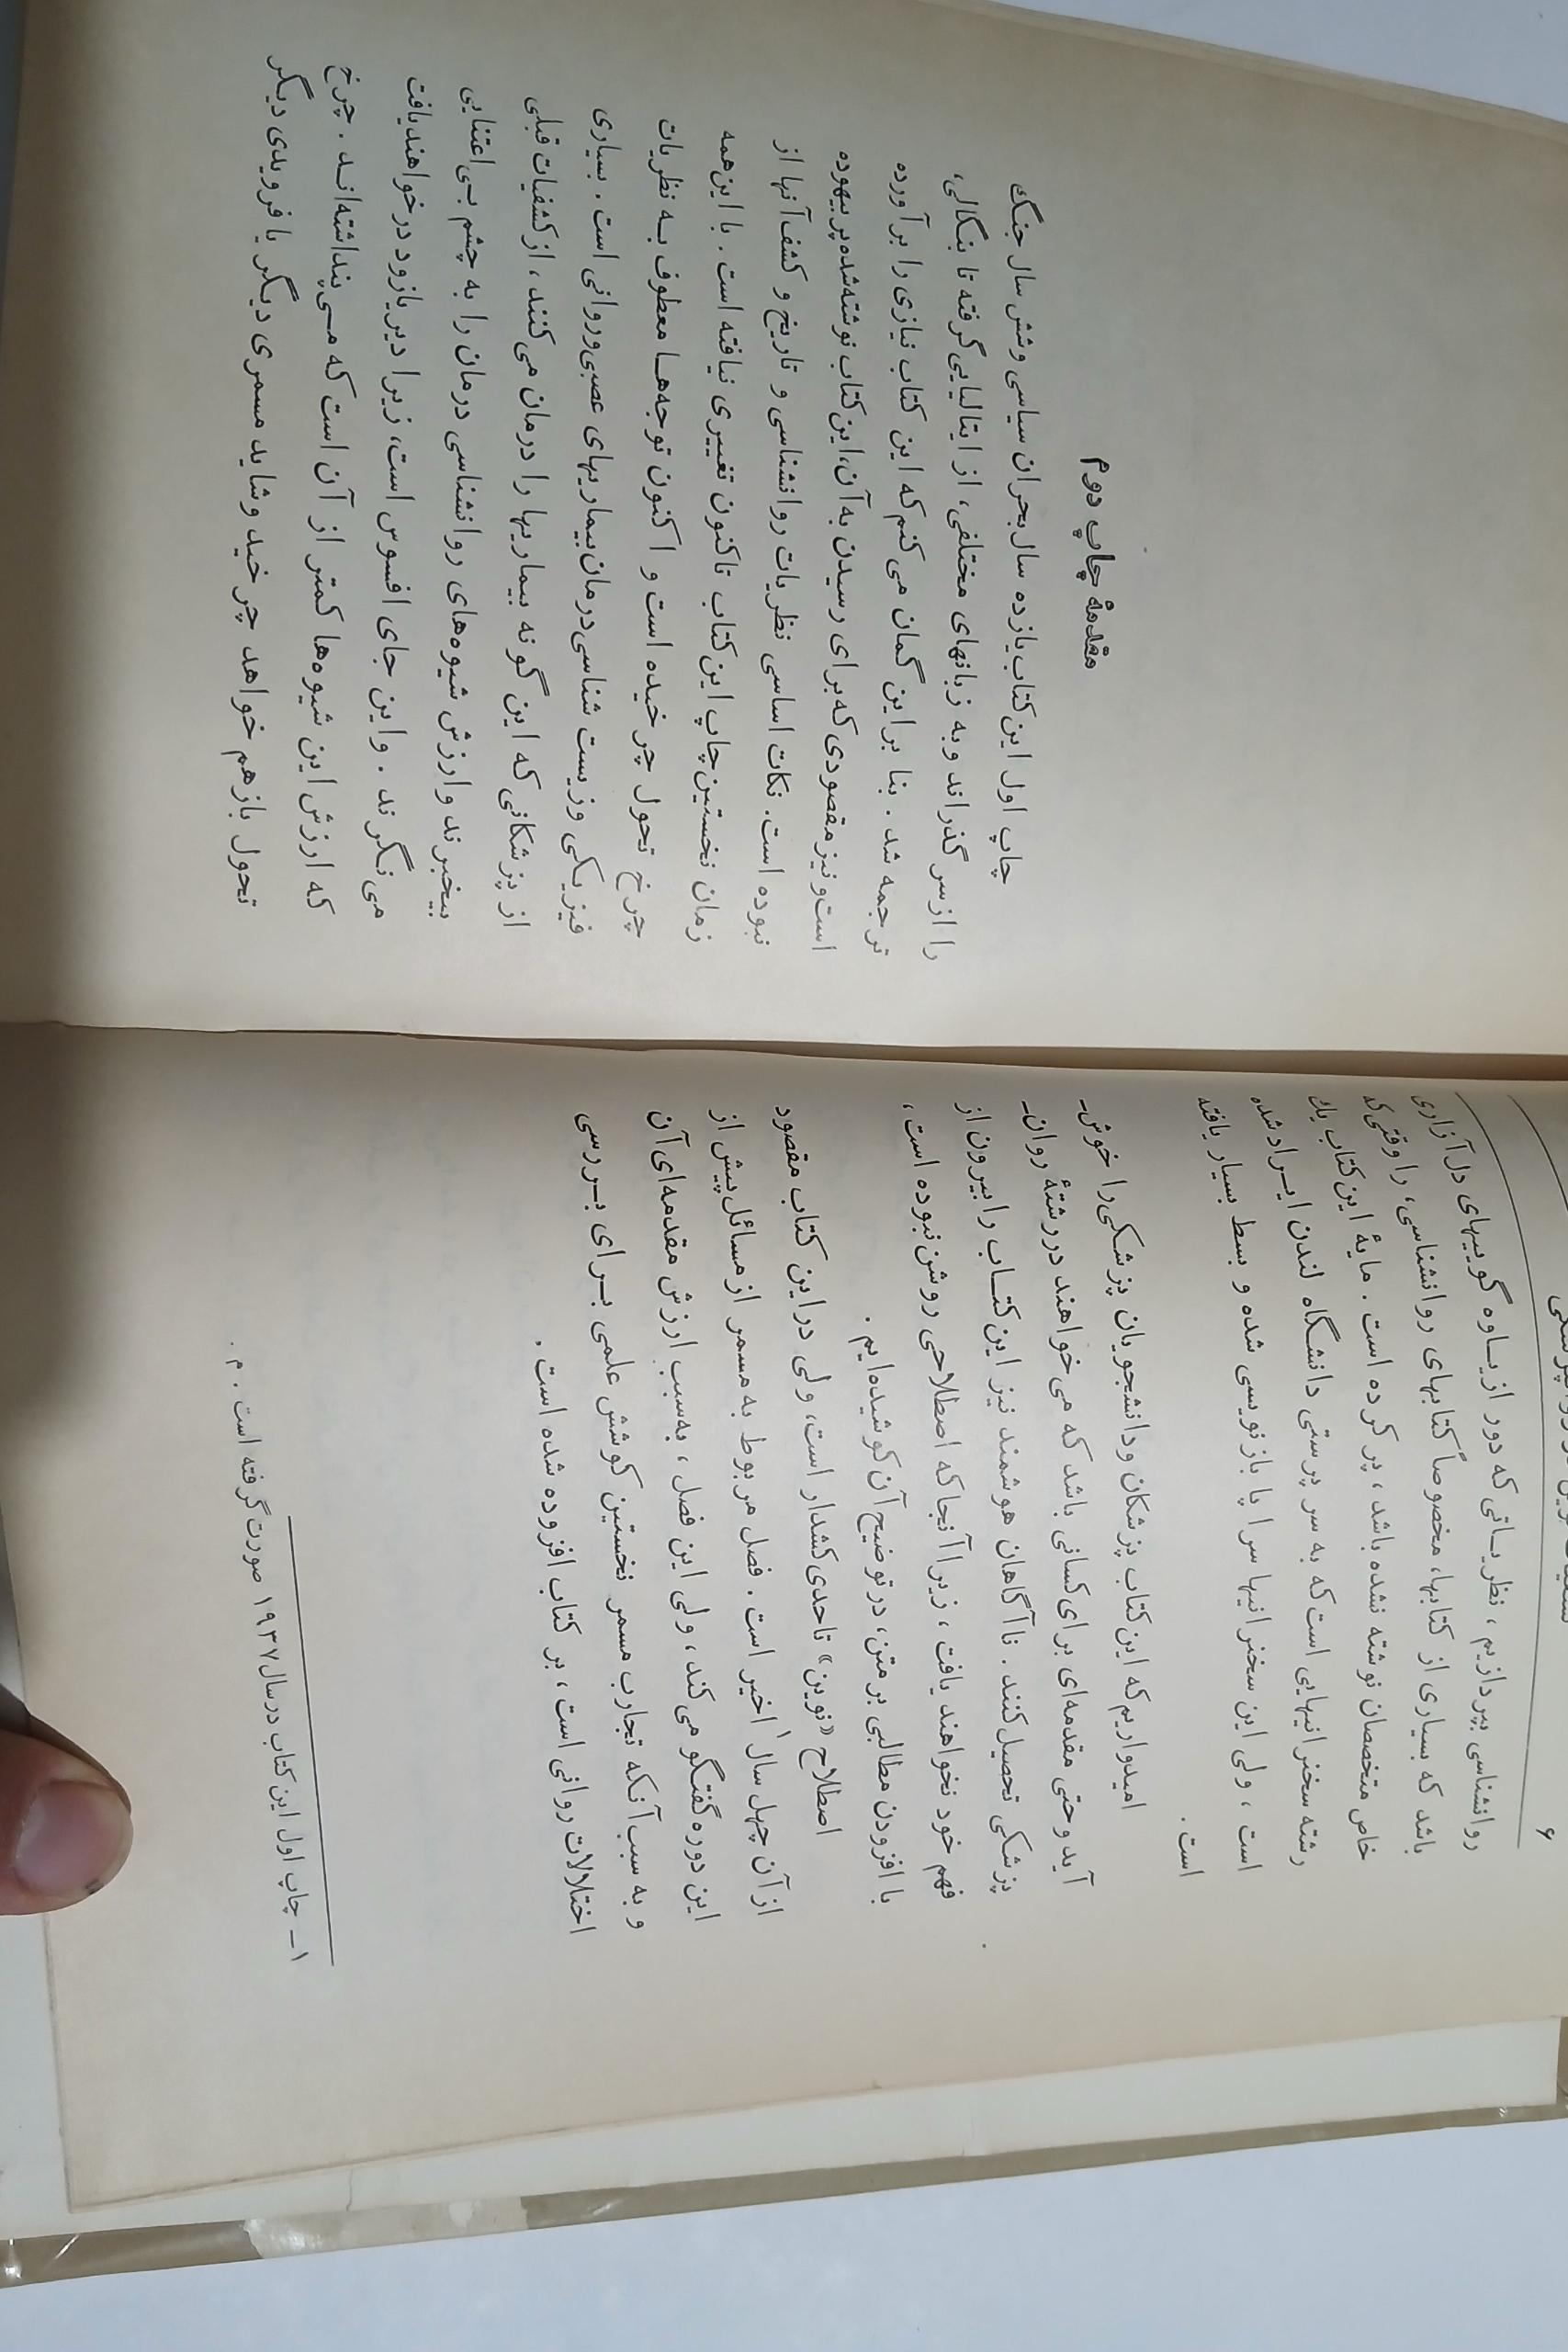 ۶
روانشناسی بپردازیم، نظریاتی که دور از یاوه گوییهای دل‌آزاری
باشد که بسیاری از کتابها، مخصوصاً کتابهای روانشناسی، را وقتی که
خاص متخصصان نوشته نشده باشد، پر کرده است. مایۀ این کتاب یك
رشته سخنرانیهایی است که به سرپرستی دانشگاه لندن ایراد شده
است، ولی این سخنرانیها سراپا بازنویسی شده و بسط بسیار یافته
است.
امیدواریم که این کتاب پزشکان و دانشجویان پزشکی را خوش-
آید و حتی مقدمه‌ای برای کسانی باشد که می‌خواهند در رشتۀ روان-
پزشکی تحصیل کنند. ناآگاهان هوشمند نیز این کتاب را بیرون از
فهم خود نخواهند یافت، زیرا آنجا که اصطلاحی روشن نبوده است،
با افزودن مطالبی بر متن، در توضیح آن کوشیده‌ایم.
اصطلاح «نوین» تا حدی کشدار است، ولی در این کتاب مقصود
از آن چهل سال۱ اخیر است. فصل مربوط به مسمر از مسائل پیش از
این دوره گفتگو می‌کند، ولی این فصل، به‌سبب ارزش مقدمه‌ای آن
و به سبب آنکه تجارب مسمر نخستین کوشش علمی برای بررسی
اختلالات روانی است، بر کتاب افزوده شده است.
۱- چاپ اول این کتاب در سال ۱۹۳۷ صورت گرفته است. م.
مقدمۀ چاپ دوم
چاپ اول این کتاب یازده سال بحران سیاسی و شش سال جنگ
را از سر گذراند و به زبانهای مختلفی، از ایتالیایی گرفته تا بنگالی،
ترجمه شد. بنابراین گمان می‌کنم که این کتاب نیازی را برآورده
است و نیز مقصودی که برای رسیدن به آن، این کتاب نوشته شده پربیهوده
نبوده است. نکات اساسی نظریات روانشناسی و تاریخ و کشف آنها از
زمان نخستین چاپ این کتاب تاکنون تغییری نیافته است. با این همه
چرخ تحول چرخیده است و اکنون توجه‌ها معطوف به نظریات
فیزیکی و زیست شناسی درمان بیماریهای عصبی و روانی است. بسیاری
از پزشکانی که این گونه بیماریها را درمان می‌کنند، از کشفیات قبلی
بیخبرند و ارزش شیوه‌های روانشناسی درمان را به چشم بی‌اعتنایی
می‌نگرند. و این جای افسوس است، زیرا دیر یا زود درخواهند یافت
که ارزش این شیوه‌ها کمتر از آن است که می‌پنداشته‌اند. چرخ
تحول باز هم خواهد چرخید و شاید مسمری دیگر یا فرویدی دیگر